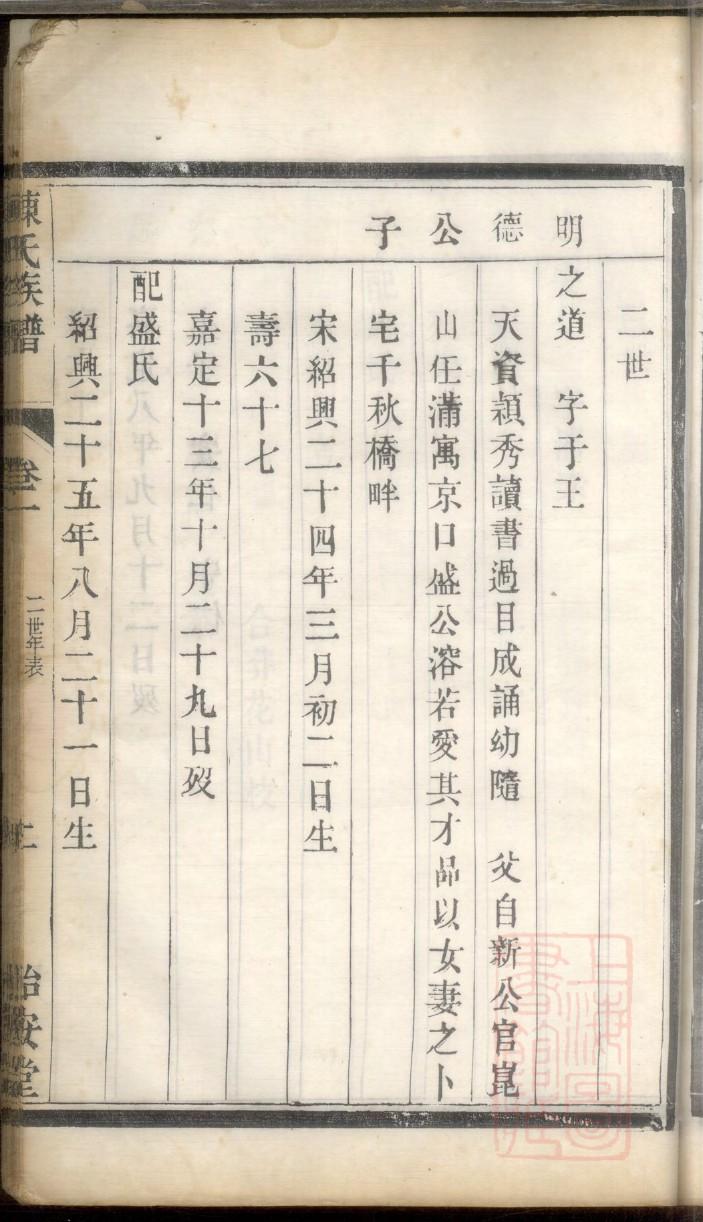 二世
明德公子
之道 字于王
天資穎秀讀書過目成誦幼隨 父自新公官崑
山任滿寓京口盛公溶若愛其才品以女妻之卜
宅千秋橋畔
宋紹興二十四年三月初二日生
壽六十七
嘉定十三年十月二十九日歿
配盛氏
紹興二十五年八月二十一日生
陳氏族譜
卷一
二世年表
怡安堂
上海圖書館藏